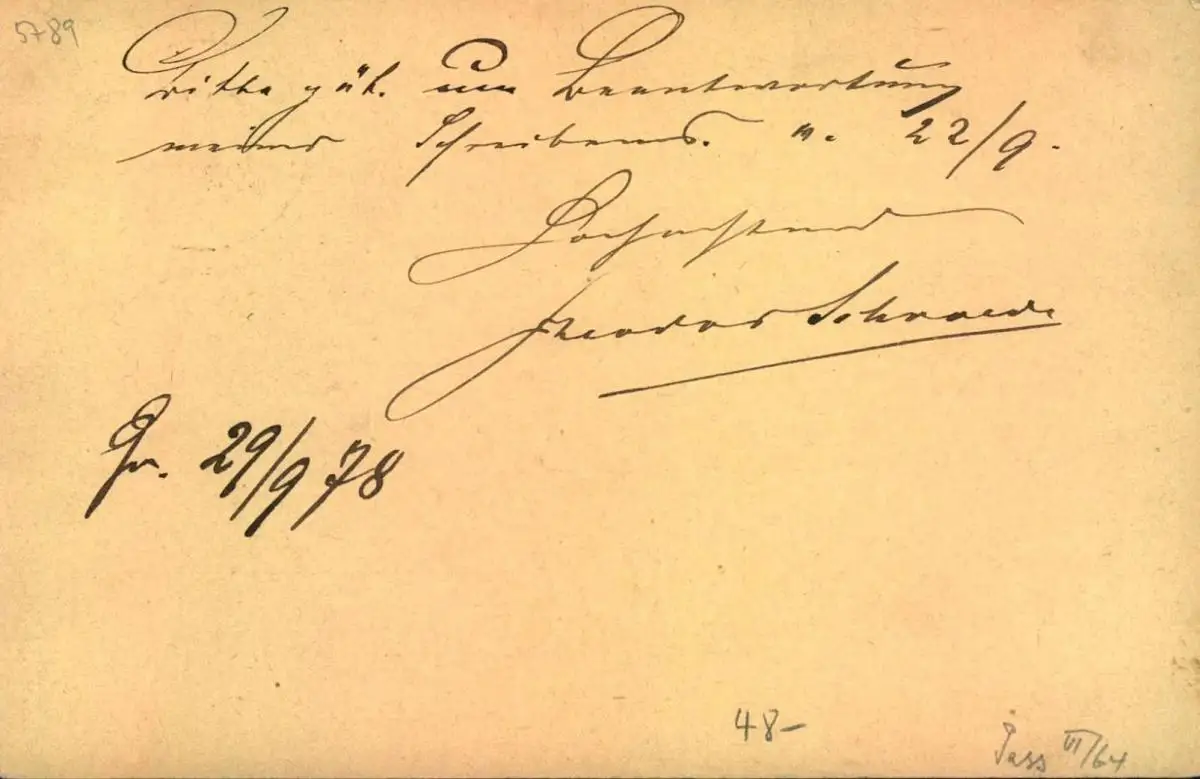 5789
Bitte güt. um Beantwortung
meines Schreibens. v. 22/9.
Hochachtend
Theodor Schroeder
Gr. 29/9 78
48-
VI/64